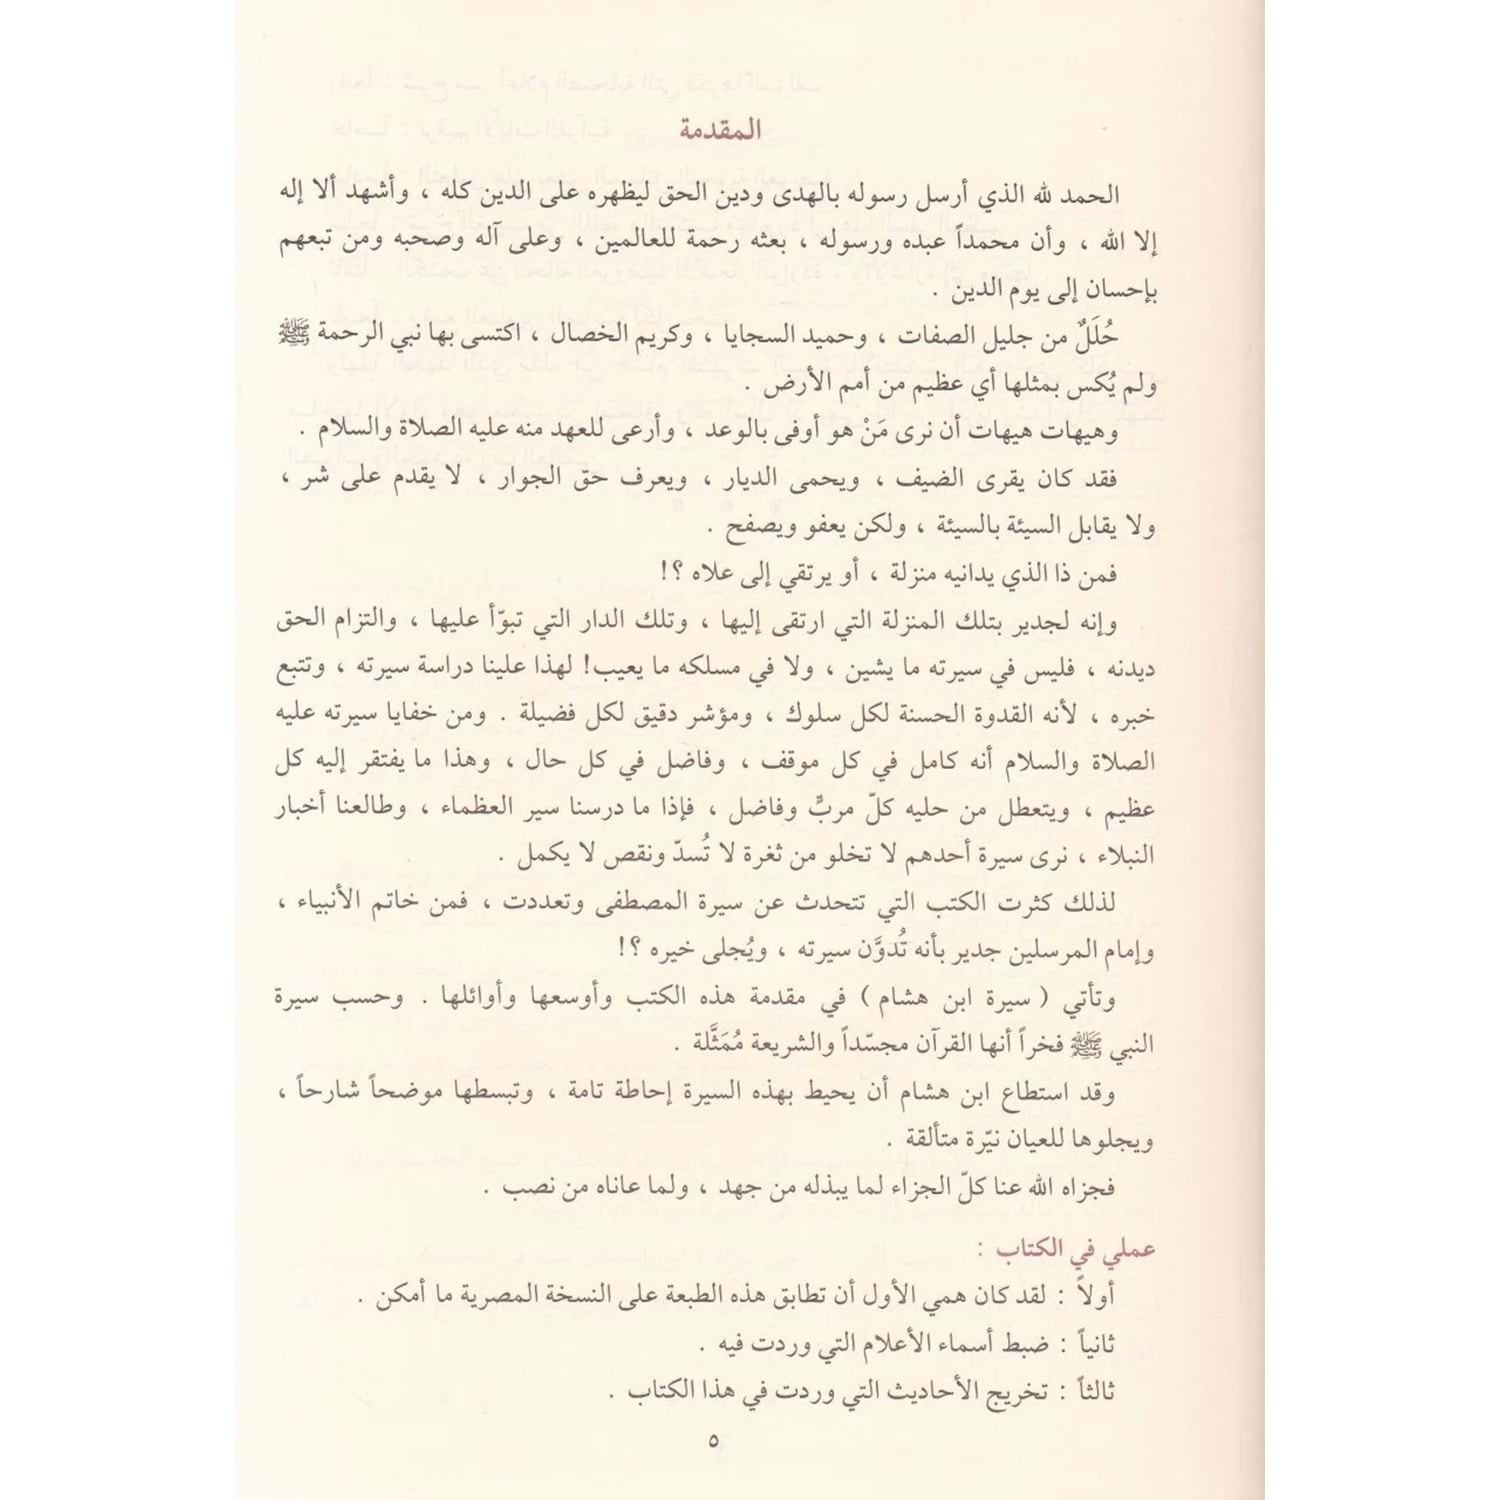 المقدمة
الحمد لله الذي أرسل رسوله بالهدى ودين الحق ليظهره على الدين كله ، وأشهد ألا إله
إلا الله ، وأن محمداً عبده ورسوله ، بعثه رحمة للعالمين ، وعلى آله وصحبه ومن تبعهم
بإحسان إلى يوم الدين .
حُلَلٌ من جليل الصفات ، وحميد السجايا ، وكريم الخصال ، اكتسى بها نبي الرحمة ﷺ
ولم يُكس بمثلها أي عظيم من أمم الأرض .
وهيهات هيهات أن نرى مَنْ هو أوفى بالوعد ، وأرعى للعهد منه عليه الصلاة والسلام .
فقد كان يقرى الضيف ، ويحمى الديار ، ويعرف حق الجوار ، لا يقدم على شر ،
ولا يقابل السيئة بالسيئة ، ولكن يعفو ويصفح .
فمن ذا الذي يدانيه منزلة ، أو يرتقي إلى علاه ؟!
وإنه لجدير بتلك المنزلة التي ارتقى إليها ، وتلك الدار التي تبوّأ عليها ، والتزام الحق
ديدنه ، فليس في سيرته ما يشين ، ولا في مسلكه ما يعيب! لهذا علينا دراسة سيرته ، وتتبع
خبره ، لأنه القدوة الحسنة لكل سلوك ، ومؤشر دقيق لكل فضيلة . ومن خفايا سيرته عليه
الصلاة والسلام أنه كامل في كل موقف ، وفاضل في كل حال ، وهذا ما يفتقر إليه كل
عظيم ، ويتعطل من حليه كلّ مربٍّ وفاضل ، فإذا ما درسنا سير العظماء ، وطالعنا أخبار
النبلاء ، نرى سيرة أحدهم لا تخلو من ثغرة لا تُسدّ ونقص لا يكمل .
لذلك كثرت الكتب التي تتحدث عن سيرة المصطفى وتعددت ، فمن خاتم الأنبياء ،
وإمام المرسلين جدير بأنه تُدوَّن سيرته ، ويُجلى خيره ؟!
وتأتي ( سيرة ابن هشام ) في مقدمة هذه الكتب وأوسعها وأوائلها . وحسب سيرة
النبي ﷺ فخراً أنها القرآن مجسّداً والشريعة مُمَثَّلة .
وقد استطاع ابن هشام أن يحيط بهذه السيرة إحاطة تامة ، وتبسطها موضحاً شارحاً ،
ويجلوها للعيان نيّرة متألقة .
فجزاه الله عنا كلّ الجزاء لما يبذله من جهد ، ولما عاناه من نصب .
عملي في الكتاب :
أولاً : لقد كان همي الأول أن تطابق هذه الطبعة على النسخة المصرية ما أمكن .
ثانياً : ضبط أسماء الأعلام التي وردت فيه .
ثالثاً : تخريج الأحاديث التي وردت في هذا الكتاب .
٥